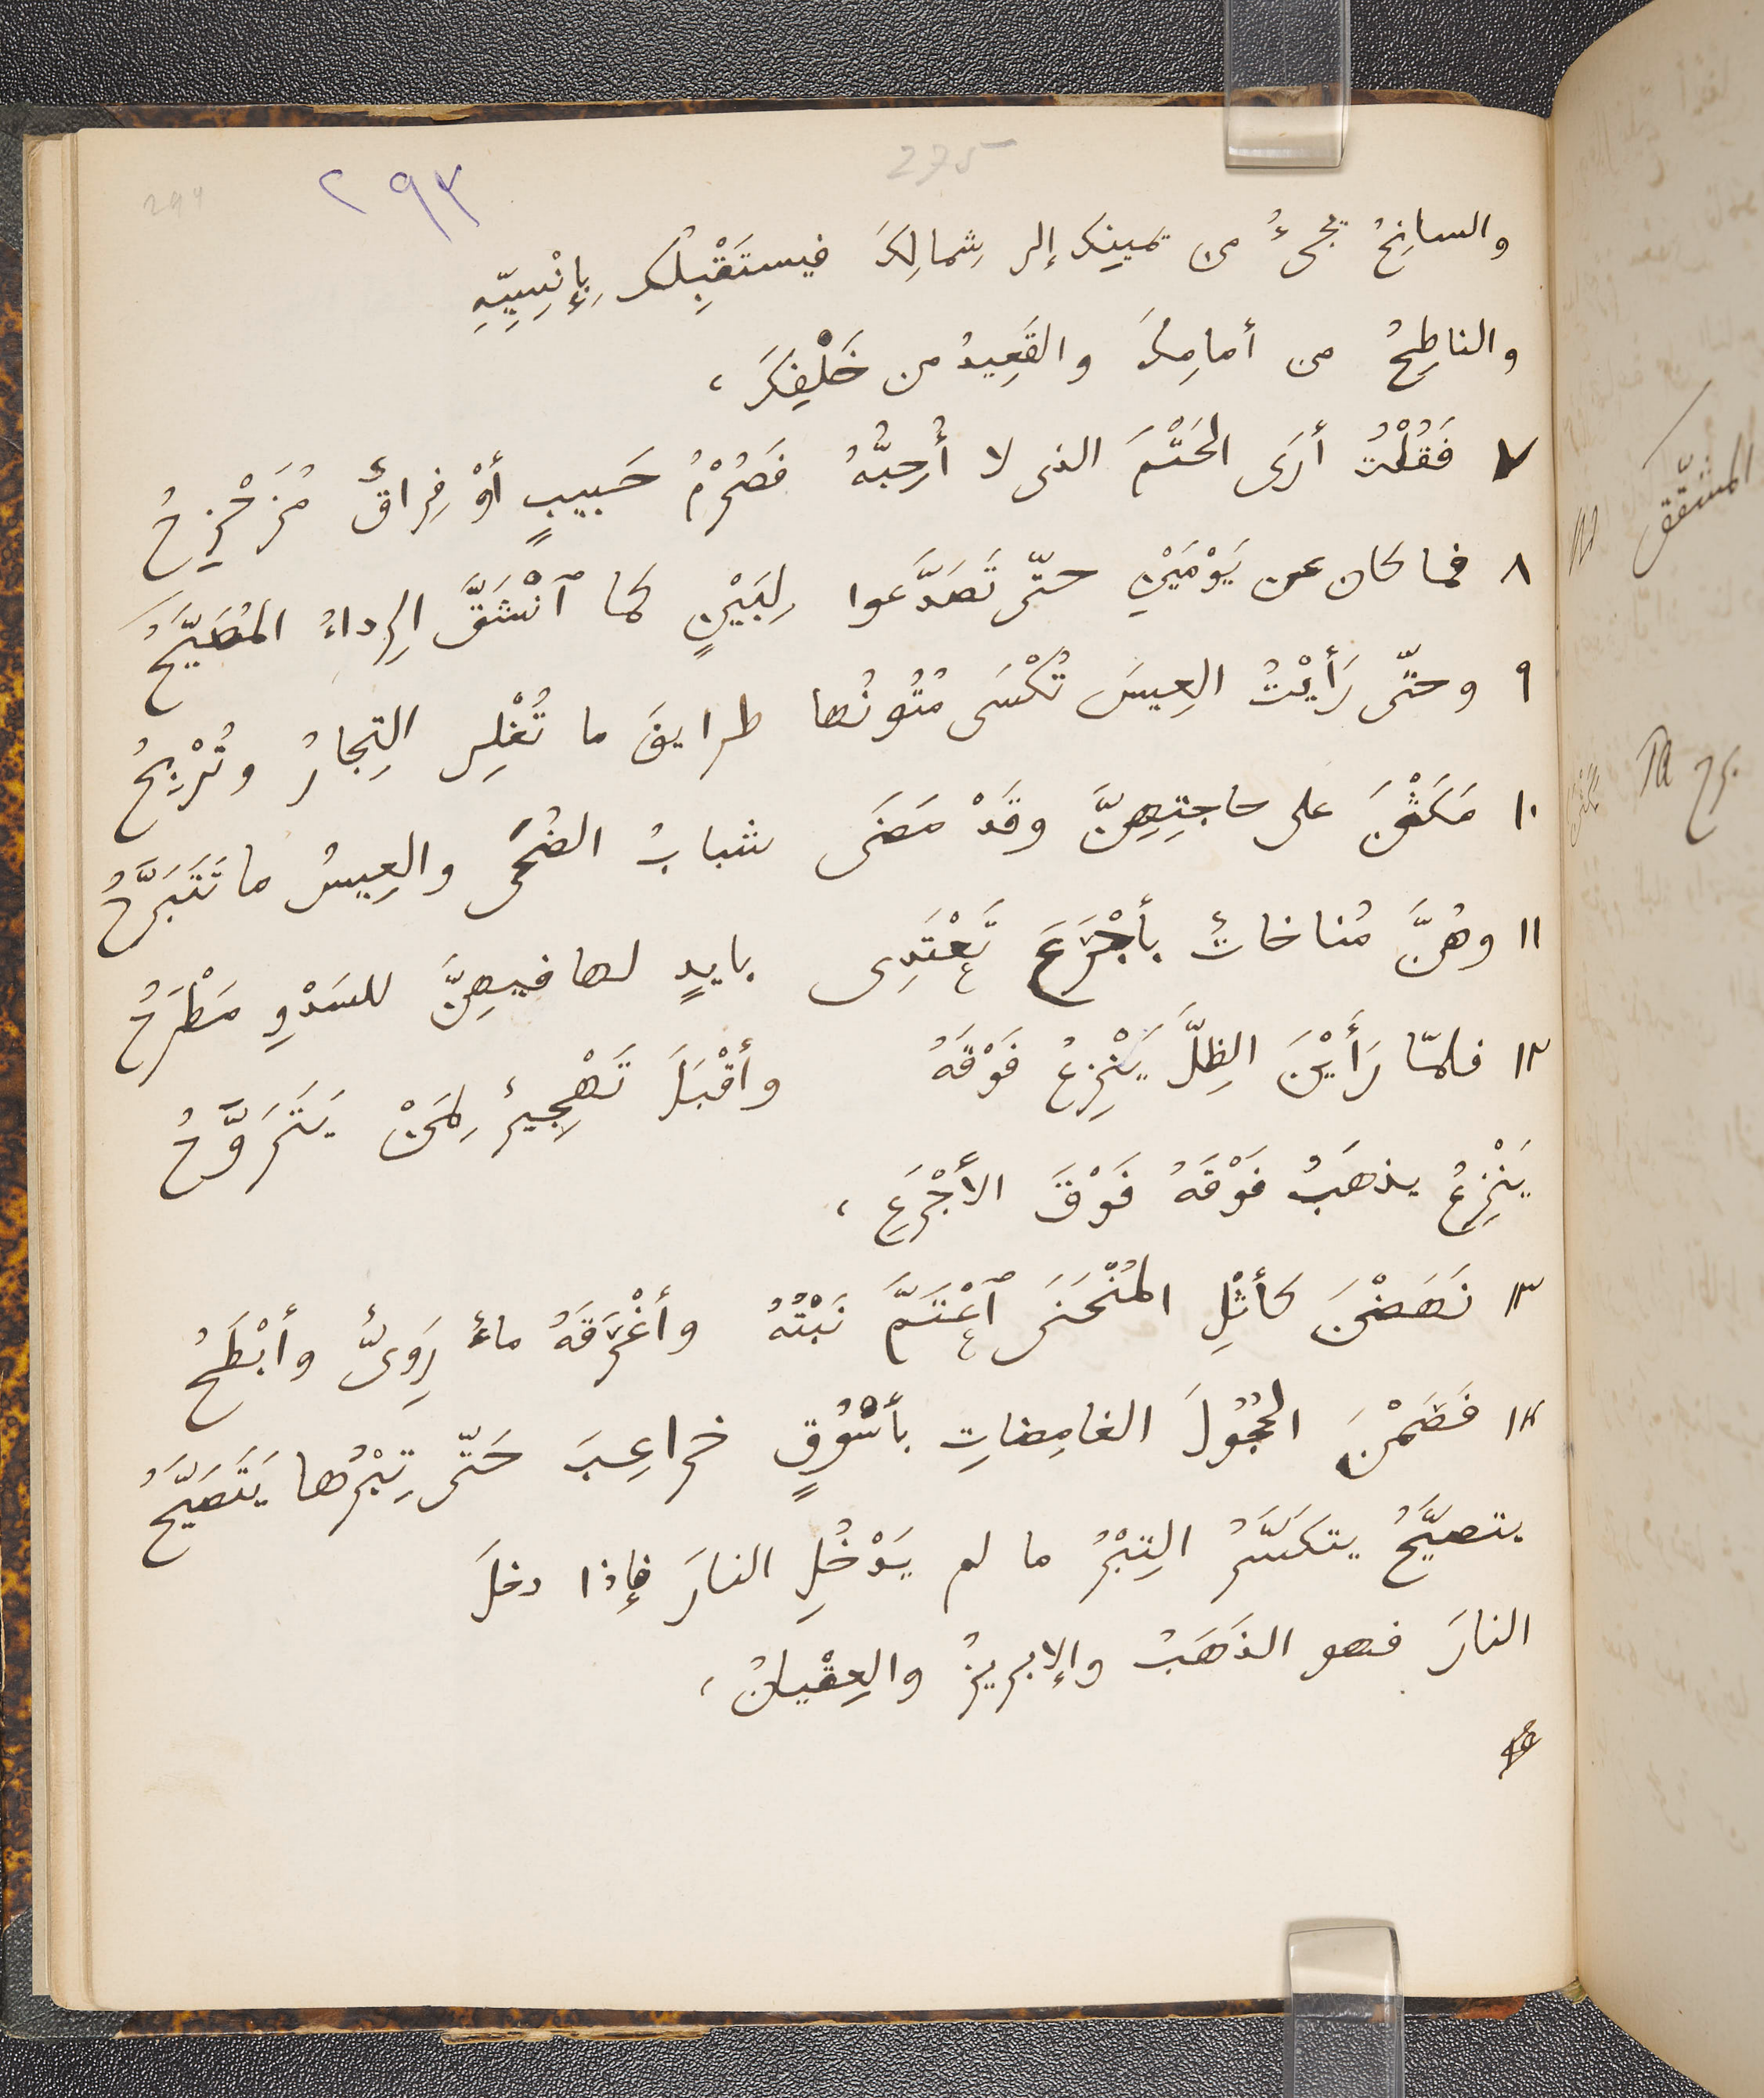 275
٢٩٣
294
والسانِحُ يجىءُ من يمينِك إلى شِمالِكَ فيستَقْبِلُك بِإنْسِيِّهِ
والناطِحُ من أمامِكَ والقَعِيدُ من خَلْفِكَ ،
٧ فَقُلْتُ أرَى الحَتْمَ الذى لا أُحِبُّهُ فَصُرْمُ حَبيبٍ أوْ فِراقٌ مُزَحْزِحُ
٨ فما كان عن يَوْمَيْنِ حتّى تَصَدَّعوا لِبَيْنٍ كما ٱنْشَقَّ الرِداءُ المُصَيَّحُ
٩ وحتّى رَأَيْتُ العِيسَ تُكْسَى مُتُونُها طرايقَ ما تُغْلِى التِجارُ وتُرْبِحُ
١٠ مَكَثْنَ على حاجتِهِنَّ وقَدْ مَضَى شبابُ الضُحَى والعِيسُ ما تَتَبَرَّحُ
١١ وهُنَّ مُناخاتٌ بأجْرَعَ تَعْتَدِى بايدٍ لها فيهِنَّ للسَدْوِ مَطْرَحُ
١٢ فلمّا رَأَيْنَ الظِلَّ يَنْزِعُ فَوْقَهُ وأقْبَلَ تَهْجِيرٌ لِمَنْ يَتَرَوَّحُ
يَنْزِعُ يذهَبُ فَوْقَهُ فَوْقَ الأَجْرَعِ ،
١٣ نَهَضْنَ كأَثْلِ المُنْحَنَى ٱعْتَمَّ نَبْتُهُ وأغْرَقَهُ ماءٌ رَوِىٌّ وأبْطَحُ
١٤ فَضَمْنَ الحُجُولَ الغامِضاتِ بأسْوُقٍ خراعِبَ حَتّى تِبْرُها يَتَصَيَّحُ
يتصيَّحُ يتكسَّرُ التِبْرُ ما لم يَدْخُلِ النارَ فإذا دخلَ
النارَ فهو الذَهَبُ والإبريزُ والعِقْيانُ ،
المشقّق
Ta